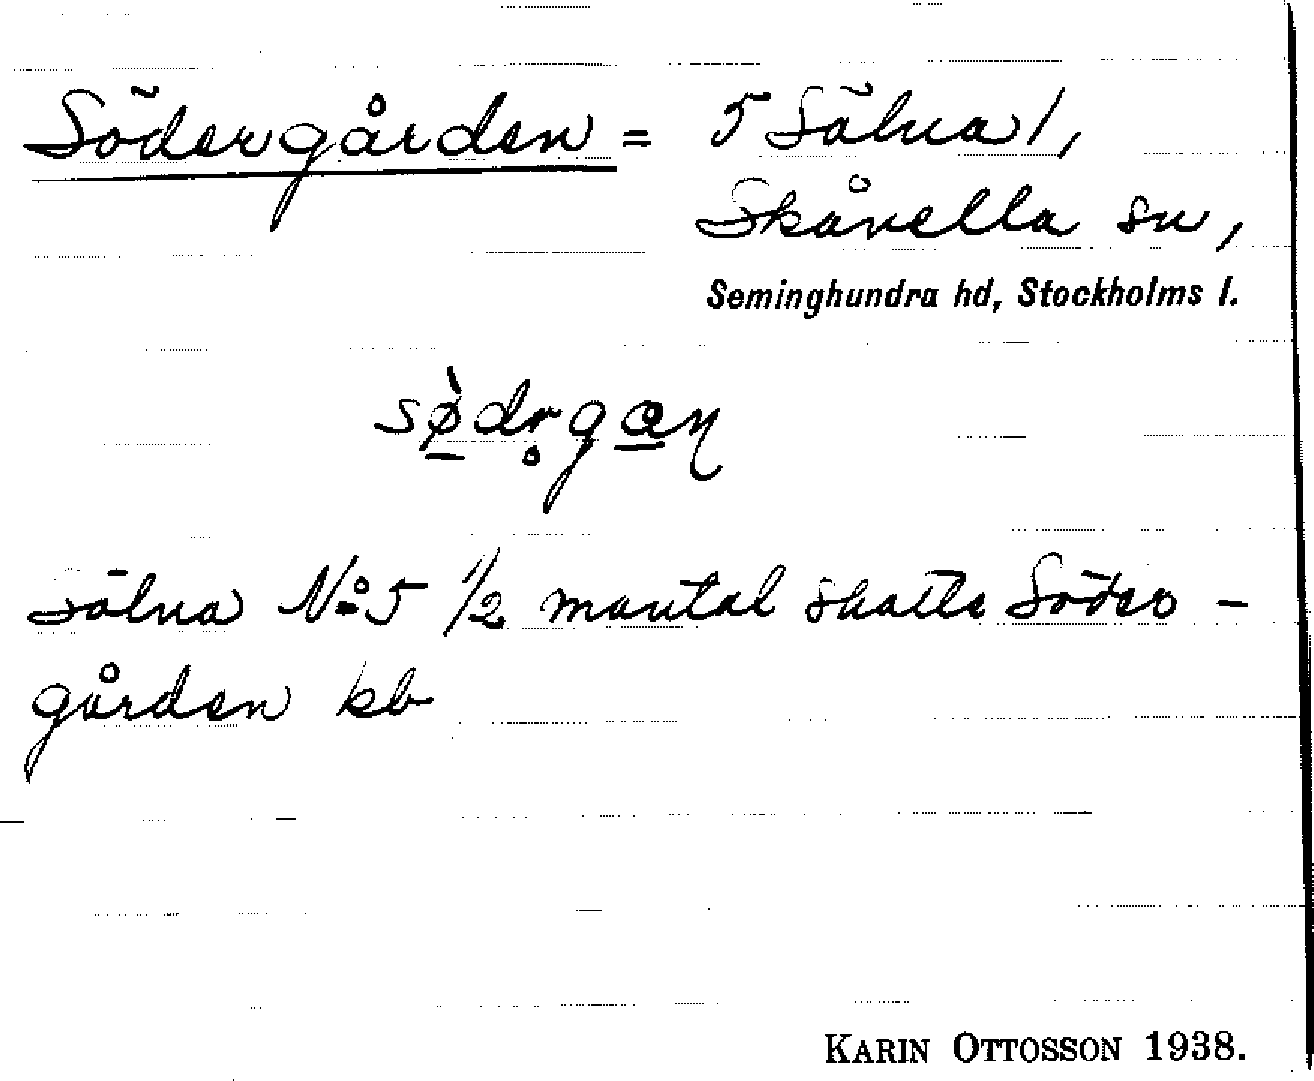 Södergården = 5 Sälna 1,
Skånella sn,
Seminghundra hd, Stockholms l.
sø̠̀dr̥gɑ̠ɳ
Sälna N:o 5 1/2 mantal skatte Söder-
gården kb
KARIN OTTOSSON 1938.